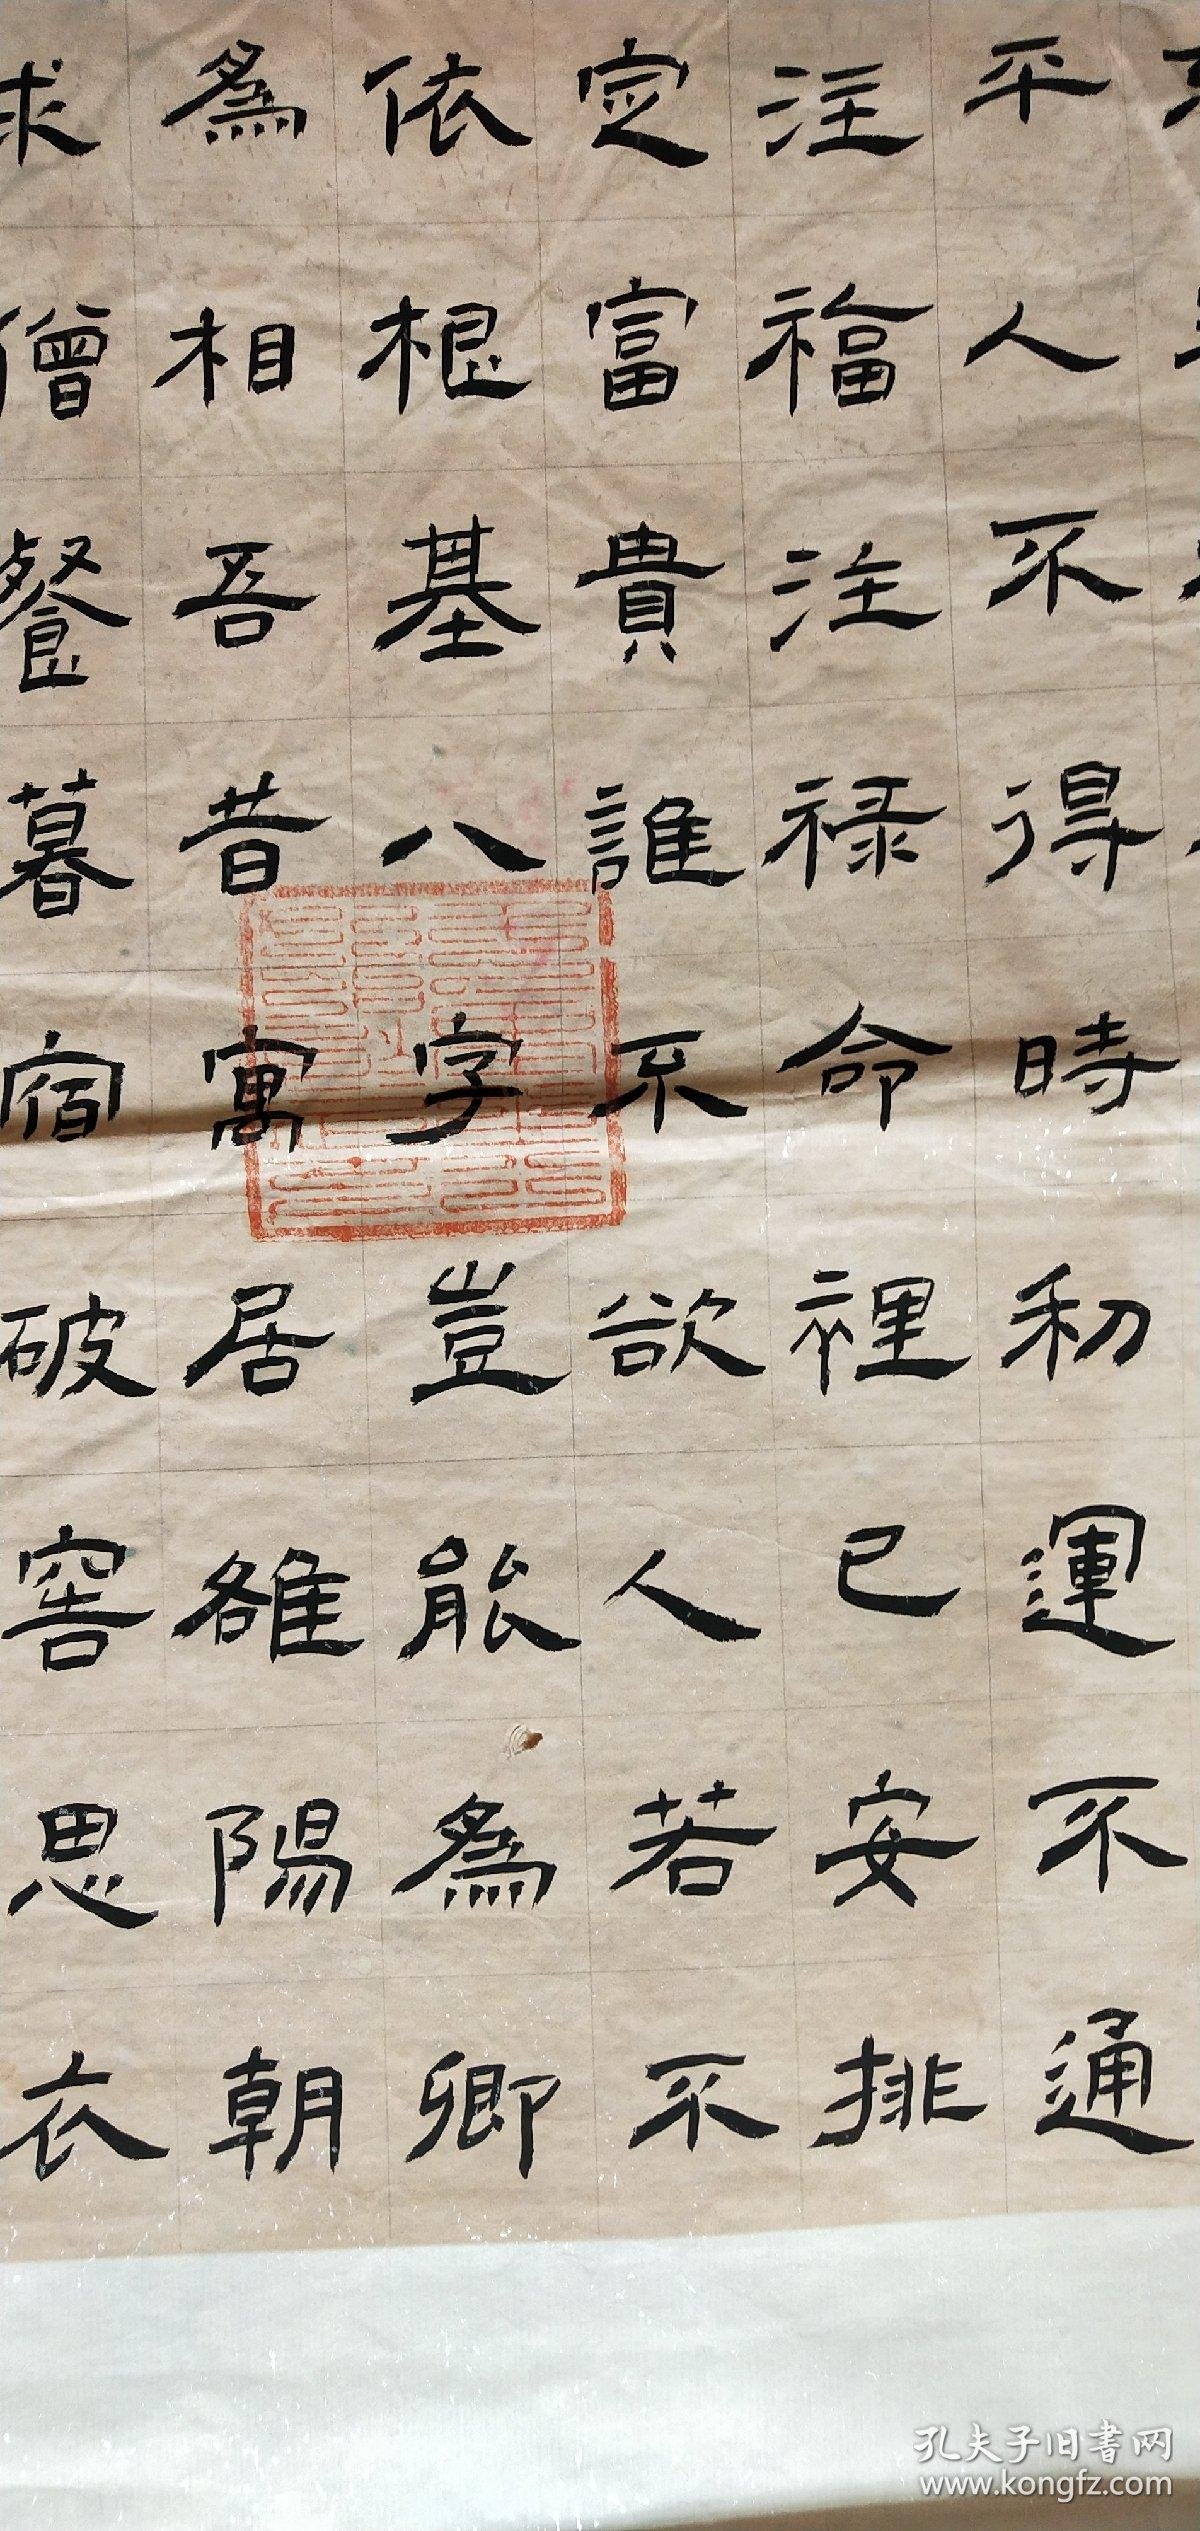 平人不得時利運不通
注福注禄命裡已安排
定富貴誰不欲人若不
依根基八字豈能為卿
為相吾昔寓居雒陽朝
求僧餐暮宿破窖思衣
孔夫子旧書网
www.kongfz.com